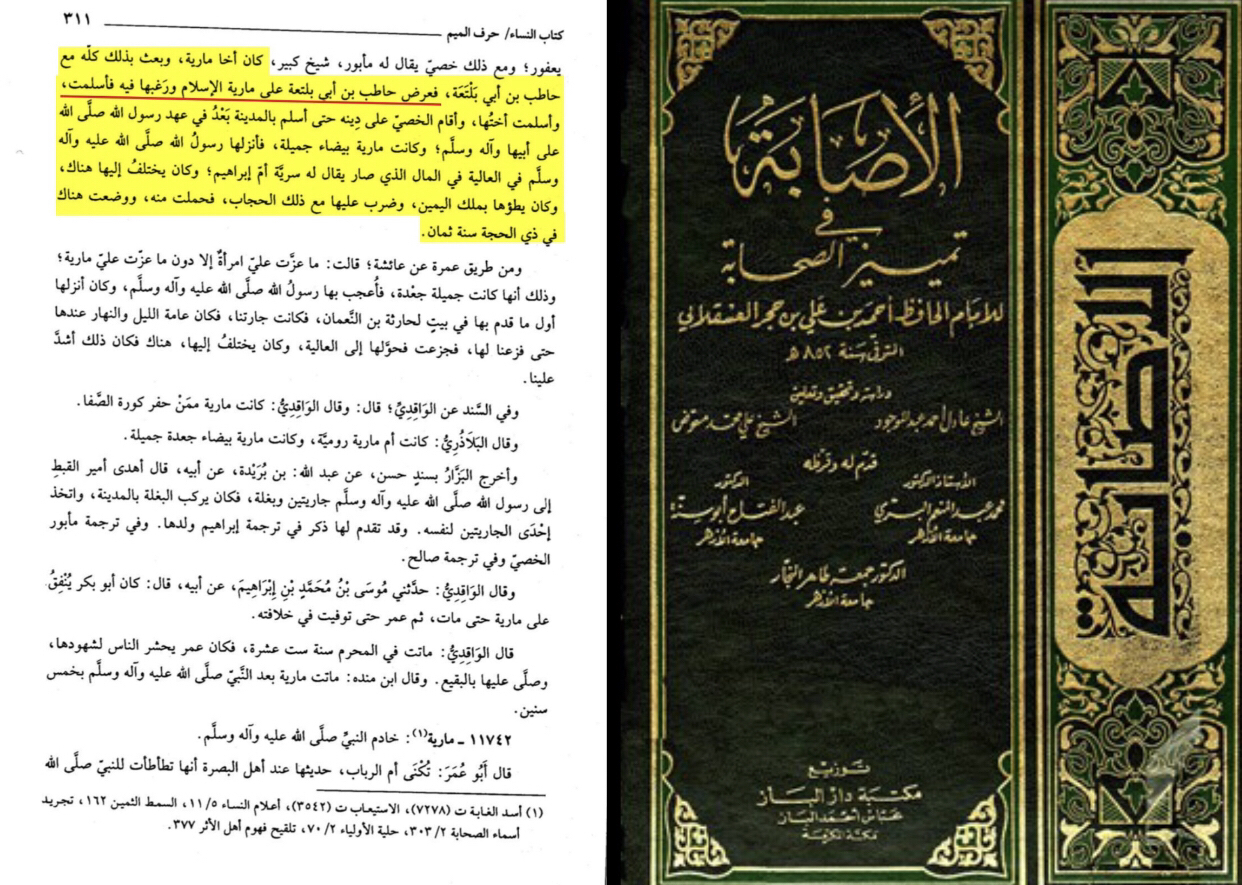 ٣١١
كتاب النساء/ حرف الميم
يعفور؛ ومع ذلك خصيّ يقال له مأبور، شيخ كبير، كان أخا مارية، وبعث بذلك كلّه مع
حاطب بن أبي بَلْتَعَة، فعرض حاطب بن أبي بلتعة على مارية الإسلام ورَغبها فيه فأسلمت،
وأسلمت أختُها، وأقام الخصيّ على دِينه حتى أسلم بالمدينة بَعْدُ في عهد رسول الله صلَّى الله
على أبيها وآله وسلَّم؛ وكانت مارية بيضاء جميلة، فأنزلها رسولُ الله صلَّى الله عليه وآله
وسلَّم في العالية في المال الذي صار يقال له سريَّة أمّ إبراهيم؛ وكان يختلفُ إليها هناك،
وكان يطؤها بملك اليمين، وضرب عليها مع ذلك الحجاب، فحملت منه، ووضعت هناك
في ذي الحجة سنة ثمان.
ومن طريق عمرة عن عائشة؛ قالت: ما عزَّت عليّ امرأةٌ إلا دون ما عزّت عليّ مارية؛
وذلك أنها كانت جميلة جعْدة، فأُعجب بها رسولُ الله صلَّى الله عليه وآله وسلَّم، وكان أنزلها
أول ما قدم بها في بيتٍ لحارثة بن النَّعمان، فكانت جارتنا، فكان عامة الليل والنهار عندها
حتى فزعنا لها، فجزعت فحوَّلها إلى العالية، وكان يختلفُ إليها، هناك فكان ذلك أشدَّ
علينا.
وفي السَّند عن الوَاقِديِّ؛ قال: وقال الوَاقِدِيُّ: كانت مارية ممَنْ حفر كورة الصَّفا.
وقال البَلَاذُرِيُّ: كانت أم مارية روميَّة، وكانت مارية بيضاء جعدة جميلة.
وأخرج البَزَّارُ بسندٍ حسن، عن عبد الله: بن بُرَيْدة، عن أبيه، قال أهدى أمير القبطِ
إلى رسول الله صلَّى الله عليه وآله وسلَّم جاريتين وبغلة، فكان يركب البغلة بالمدينة، واتخذ
إحْدَى الجاريتين لنفسه. وقد تقدم لها ذكر في ترجمة إبراهيم ولدها. وفي ترجمة مأبور
الخصيّ وفي ترجمة صالح.
وقال الوَاقِدِيُّ: حدَّثني مُوسَى بْنُ مُحَمَّدِ بْنِ إِبْرَاهِيمَ، عن أبيه، قال: كان أبو بكر يُنْفِقُ
على مارية حتى مات، ثم عمر حتى توفيت في خلافته.
قال الوَاقِدِيُّ: ماتت في المحرم سنة ست عشرة، فكان عمر يحشر الناس لشهودها،
وصلَّى عليها بالبقيع. وقال ابن منده: ماتت مارية بعد النَّبيّ صلَّى الله عليه وآله وسلَّم بخمس
سنين.
١١٧٤٢ - مارية(١): خادم النبيِّ صلَّى الله عليه وآله وسلَّم.
قال أَبُو عُمَرَ: تُكْنَى أم الرباب، حديثها عند أهل البصرة أنها تطأطأت للنبيّ صلَّى الله
(١) أسد الغابة ت (٧٢٧٨)، الاستيعاب ت (٣٥٤٢)، أعلام النساء ١١/٥، السمط الثمين ١٦٢، تجريد
أسماء الصحابة ٣٠٣/٢، حلية الأولياء ٧٠/٢، تلقيح فهوم أهل الأثر ٣٧٧.
الأصابة
في
تمييز الصحابة
للامام الحافظ أحمد بن علي بن حجر العسقلاني
المتوفى سنة ٨٥٢ هـ
دراسة وتحقيق وتعليق
الشيخ عادل أحمد عبد الموجود
الشيخ علي محمد معوض
قدّم له وقرّظه
الأستاذ الدكتور
محمد عبد المنعم البري
جامعة الأزهر
الدكتور
عبد الفتاح أبو سنة
جامعة الأزهر
الدكتور جمعة طاهر النجار
جامعة الأزهر
توزيع
مكتبة دار الباز
عباس أحمد الباز
مكة المكرمة
الاصابة